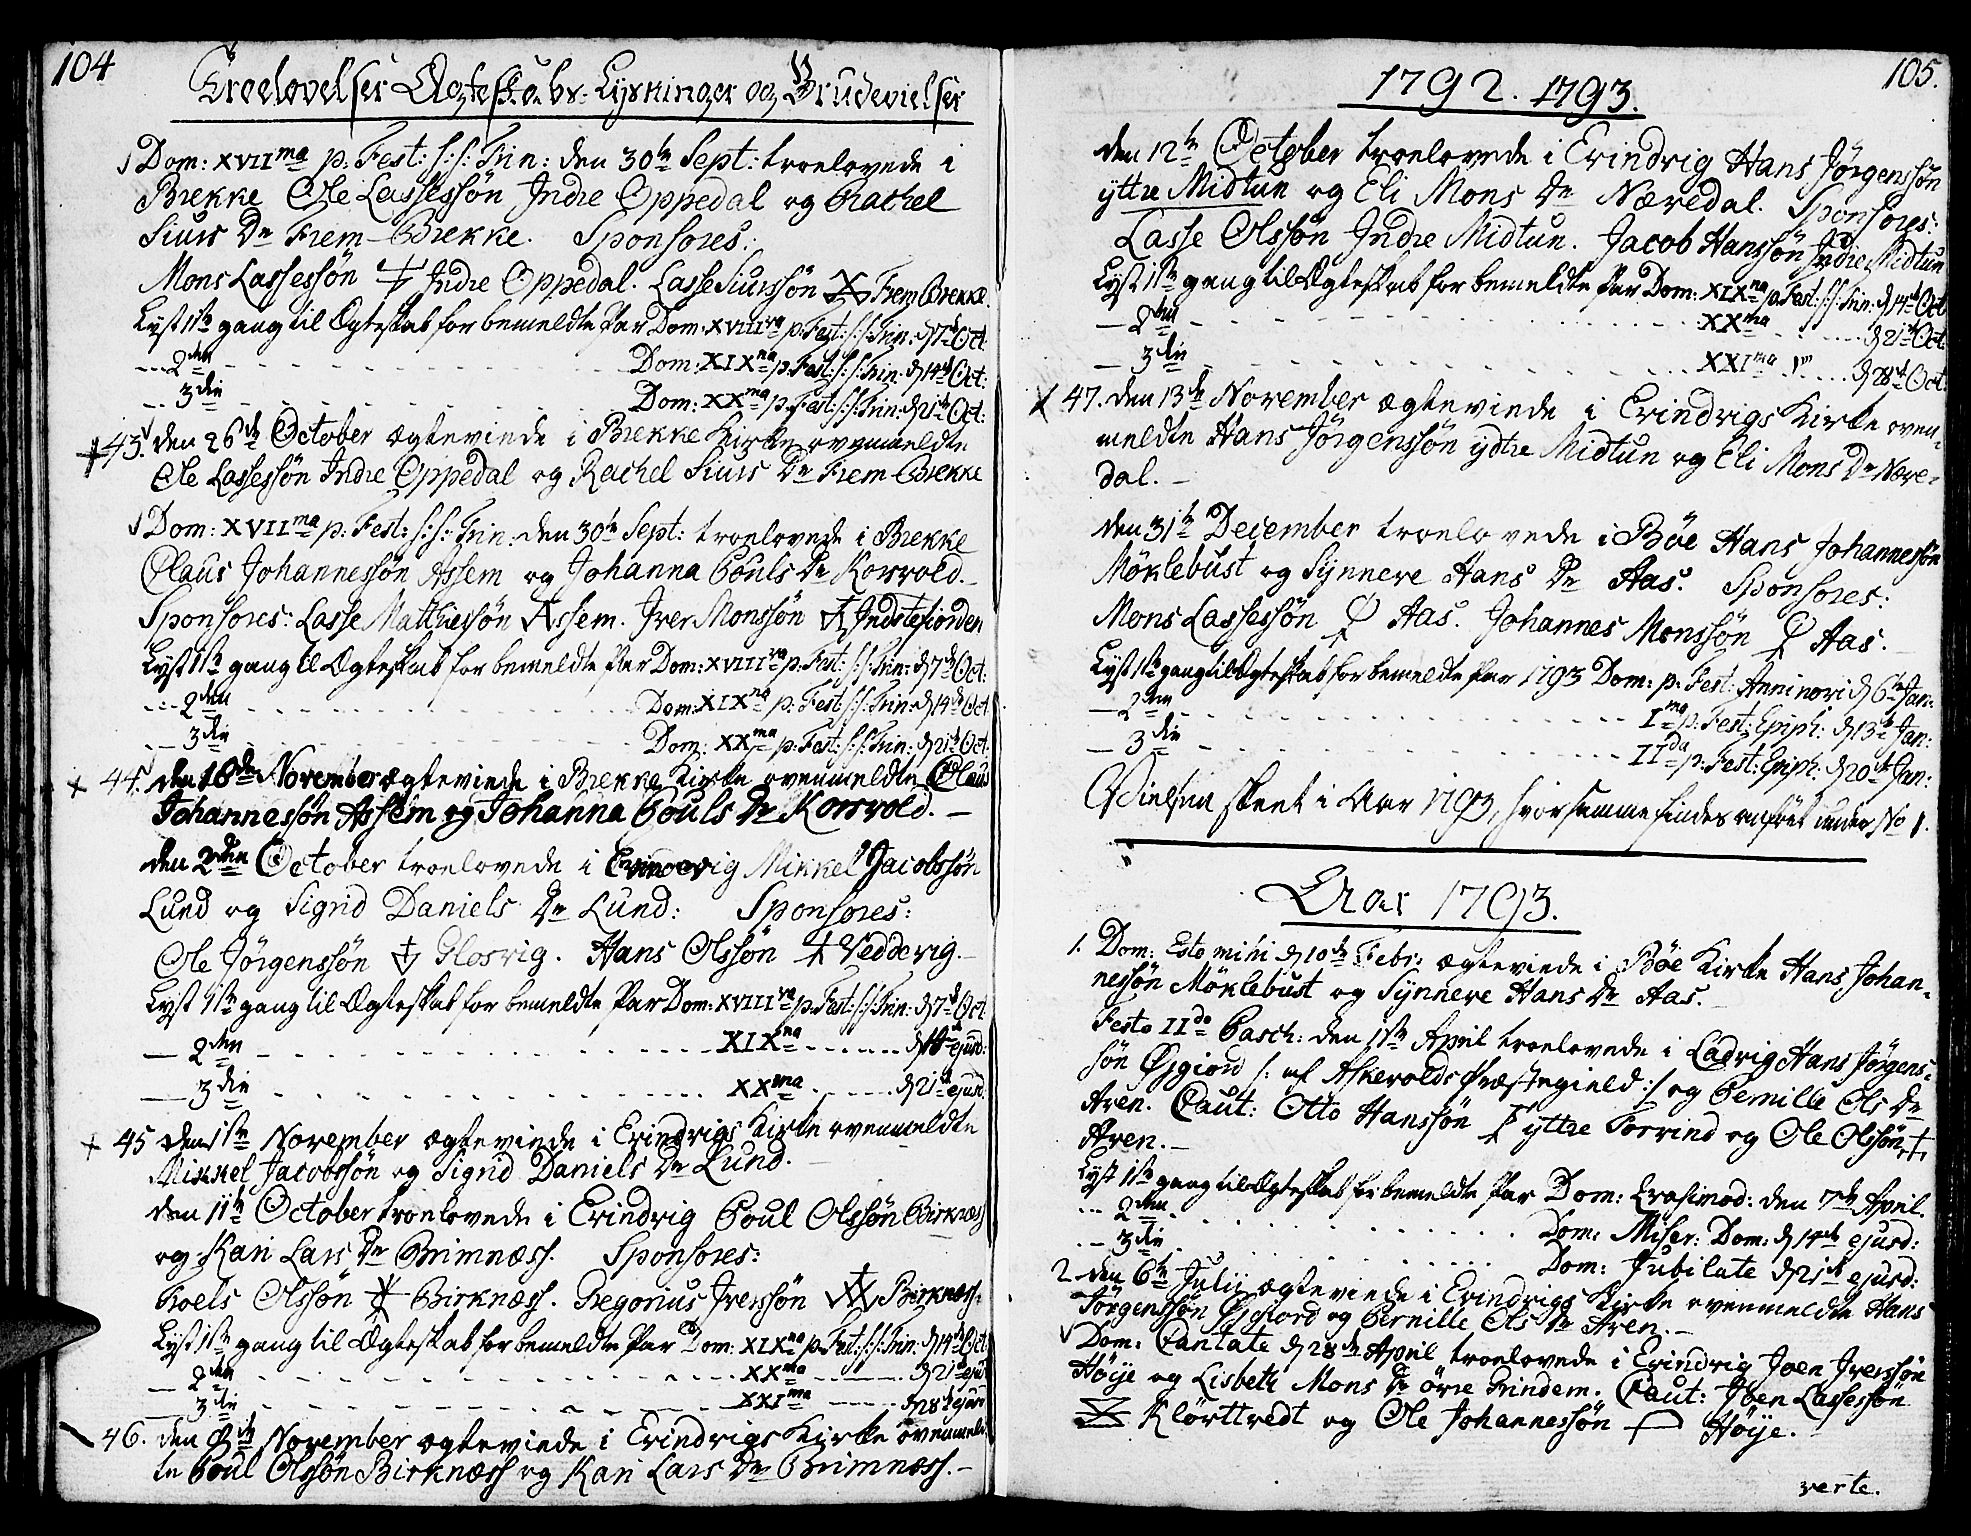 104
Troelovelser Ægteskabs-Lysninger og Brudevielser
Dom: XVII ma p: Fest: s: s: Trin: den 30te Sept: troelovede i
Brekke Ole Lassessøn Indre Oppedal og Rachel
Siurs Dr Frem-Brekke. Sponsores:
Mons Lassessøn Indre Oppedal. Lasse Siurssøn Frem Brekke.
Lyst 1ste gang til Ægteskab for bemeldte Par Dom: XVIII va p: Fest: s: s: Trin: d 7de Oct:
2den Dom: XIX na p: Fest: s: s: Trin: d 14de Oct:
3die Dom: XX ma p: Fest: s: s: Trin: d 21de Oct:
43. den 26de October ægteviede i Brekke Kirke ovenmeldte
Ole Lassessøn Indre Oppedal og Rachel Siurs Dr Frem Brekke
Dom: XVII ma p: Fest: s: s: Trin: den 30te Sept: troelovede i Brekke
Claus Johannessøn Assem og Johanna Pouls Dr Korsvold.
Sponsores: Lasse Matthiessøn Assem. Iver Monssøn Indrefiorden
Lyst 1ste gang til Ægteskab for bemeldte Par Dom: XVIII va p: Fest: s: s: Trin: d 7de Oct:
2den Dom: XIX na p: Fest: s: s: Trin: d 14de Oct
3die Dom: XX ma p: Fest: s: s: Trin: d 21de Oct:
44. den 18de November ægteviede i Brekke Kirke ovenmeldte Claus
Johannessøn Assem og Johanna Pouls Dr Korsvold. –
den 2den October troelovede i Evindvig Mikkel Jacobssøn
Lund og Sigrid Daniels Dr Lund: Sponsores:
Ole Jørgenssøn Glosvig. Hans Olssøn Veddevig. –
Lyst 1ste gang til Ægteskab for bemeldte Par Dom: XVIII va p: Fest: s: s: Trin: d 7de Oct:
2den XIX na d 14de ejusd:
3die XX ma d 21de ejusd:
45 den 1ste November ægteviede i Evindvigs Kirke ovenmeldte
Mikkel Jacobssøn og Sigrid Daniels Dr Lund. –
den 11te October troelovede i Evindvig Poul Olssøn Birknæss
og Kari Lars Dr Brimnæss. Sponsores:
Troels Olssøn Birknæss. Gregorius Iverssøn Birknæss.
Lyst 1ste gang til Ægteskab for bemeldte Par Dom: XIX na p: Fest: s: s: Trin: d 14de Oct:
2den XX ma d 21de ejusd
3die XXI ma d 28de ejusd
46. den November ægteviede i Evindvigs Kirke ovenmeld-
te Poul Olssøn Birknæss og Kari Lars Dr Brimnæss. –
1792. 1793.
105.
den 12te October troelovede i Evindvig Hans Jørgenssøn
yttre Midtun og Eli Mons Dr Næredal. Sponsores:
Lasse Olssøn Indre Midtun. Jacob Hanssøn Indre Midtun
Lyst 1ste gang til Ægteskab for bemeldte Par Dom: XIX na p: Fest: s: s: Trin: d 14de Oct
2den XX ma d 21de Oct:
3die XXI ma d 28de Oct:
47. den 13de November ægteviede i Evindvigs Kirke oven-
meldte Hans Jørgenssøn ydtre Midtun og Eli Mons Dr Nære-
dal. –
den 31te December troelovede i Bøe Hans Johannessøn
Møklebust og Synneve Hans Dr Aas. Sponsores:
Mons Lassessøn Aas. Johannes Monssøn Aas.
Lyst 1ste gang til Ægteskab for bemeldte Par 1793 Dom: p: Fest: Anni novi d 6te Jan:
2den I ma p: Fest: Epiph: d 13de Jan:
3die II da p: Fest: Epiph: d 20de Jan:
Vielsen skeet i Aar 1793, hvor samme findes anført under No 1.
Aar 1793.
1. Dom: Esto mihi d 10de Febr: ægteviede i Bøe Kirke Hans Johan-
nessøn Møklebust og Synneve Hans Dr Aas. –
Festo II do Pasch: den 1ste April troelovede i Ladvig Hans Jørgens-
søn Øjgiord /: af Askevolds Præstegield :/ og Pernille Ols Dr
Aren. Caut: Otto Hanssøn yttre Torvind og Ole Olssøn
Aren. –
Lyst 1ste gang til Ægteskab for bemeldte Par Dom: Qvasimod: den 7de April.
2den Dom: Miser: Dom: d 14de ejusd:
3die Dom: Jubilate d 21de ejusd:
2. den 6te Julii ægteviede i Evindvigs Kirke ovenmeldte Hans
Jørgenssøn Øjgiord og Pernille Ols Dr Aren. –
Dom: Cantate d 28de April troelovede i Evindvig Joen Iverssøn
Høije og Lisbeth Mons Dr øvre Grindem. Caut: Joen Lassessøn
Kløvtvedt og Ole Johannessøn Høije.
verte.